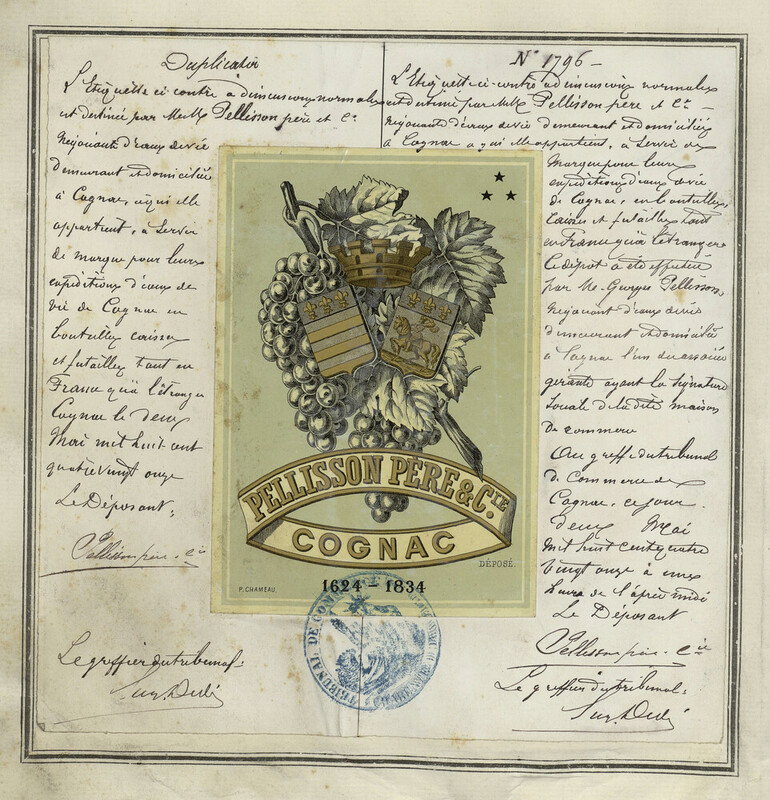 Duplicata
L'Etiquette ci-contre à dimensions normales
est destinée par MM. Pellisson père et Cie
Négociants d'eaux de vie
demeurant et domiciliés
à Cognac, à qui elle
appartient, à servir
de marque pour leurs
expéditions d'eaux de
vie de Cognac en
bouteilles caisses
et futailles tant en
France qu'à l'étranger
Cognac le deux
Mai mil huit cent
quatre vingt onze
Le Déposant,
Pellisson père & Cie
Le greffier du tribunal.
No 1796 -
L'Etiquette ci-contre à dimensions normales
est destinée par MM. Pellisson père et Cie -
Négociants d'eaux de vie demeurant et domiciliés
à Cognac à qui elle appartient, à servir de
Marque pour leurs
expéditions d'eaux de vie
de Cognac, en bouteilles,
caisses et futailles tant
en France qu'à l'étranger
Le dépôt a été effectué
par M. Georges Pellisson,
Négociant d'eaux de vie
demeurant et domicilié
à Cognac l'un des associés
gérants ayant la signature
sociale de la dite maison
de commerce
Au greffe du tribunal
de Commerce de
Cognac, ce jour
deux Mai
mil huit cent quatre
vingt onze à
heures de l'après midi
Le Déposant
Pellisson père & Cie
Le greffier du tribunal.
PELLISSON PERE & CIE.
COGNAC
DÉPOSÉ.
1624 - 1834
P. CHAMEAU.
TRIBUNAL DE COMMERCE